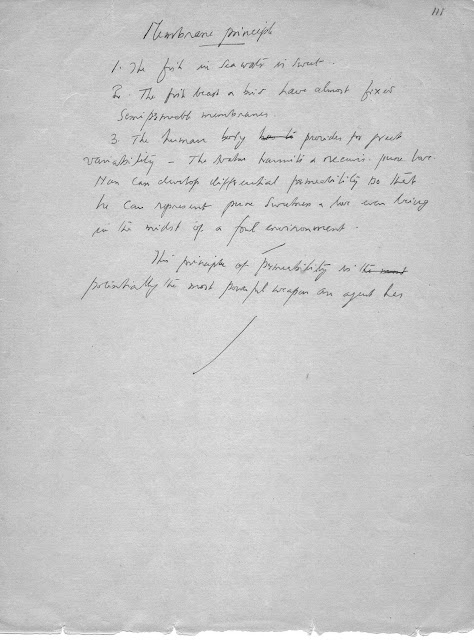 115
Membrane principle
1. The fish in sea water is sweet.
2. The fish beast & bird have almost fixed
Semipermeable membranes
3. The human body provides for great
variability – The Avatar transmits & receives pure love.
Man can develop differential permeability so that
he can represent pure sweetness & love even living
in the midst of a foul environment.
This principle of permeability is
potentially the most powerful weapon an agent has